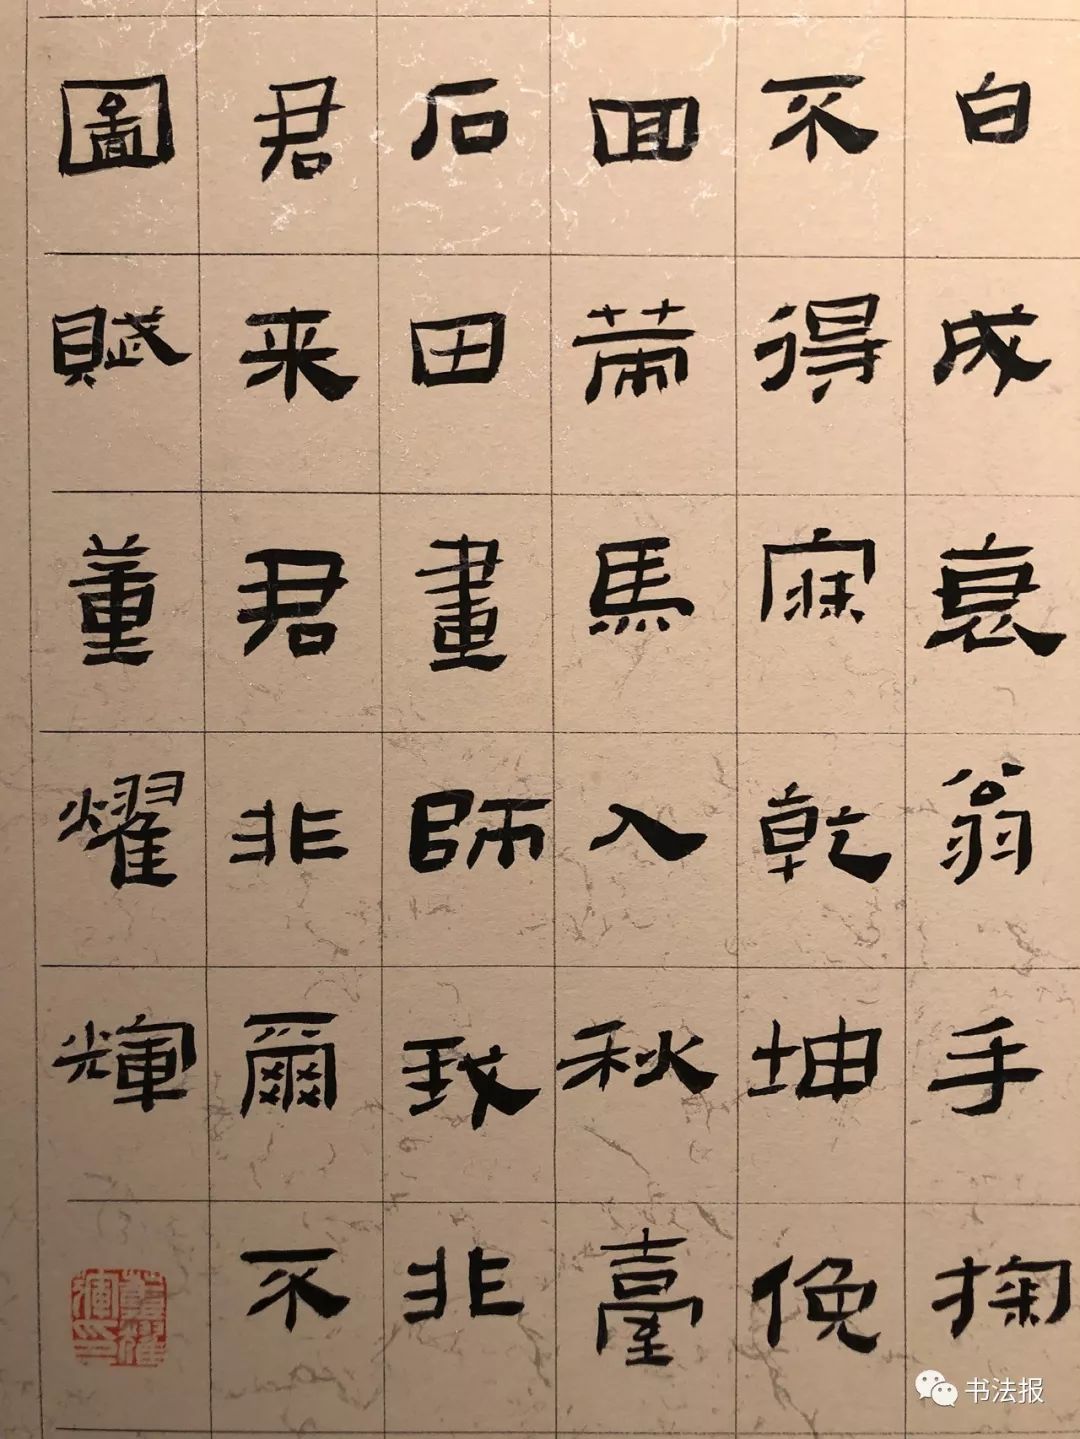 白成衰翁手掬
不得寐乾坤俛
回馬入秋臺
石田畫師非
君来君非爾不
圖賦董燿輝
董燿輝印
书法报